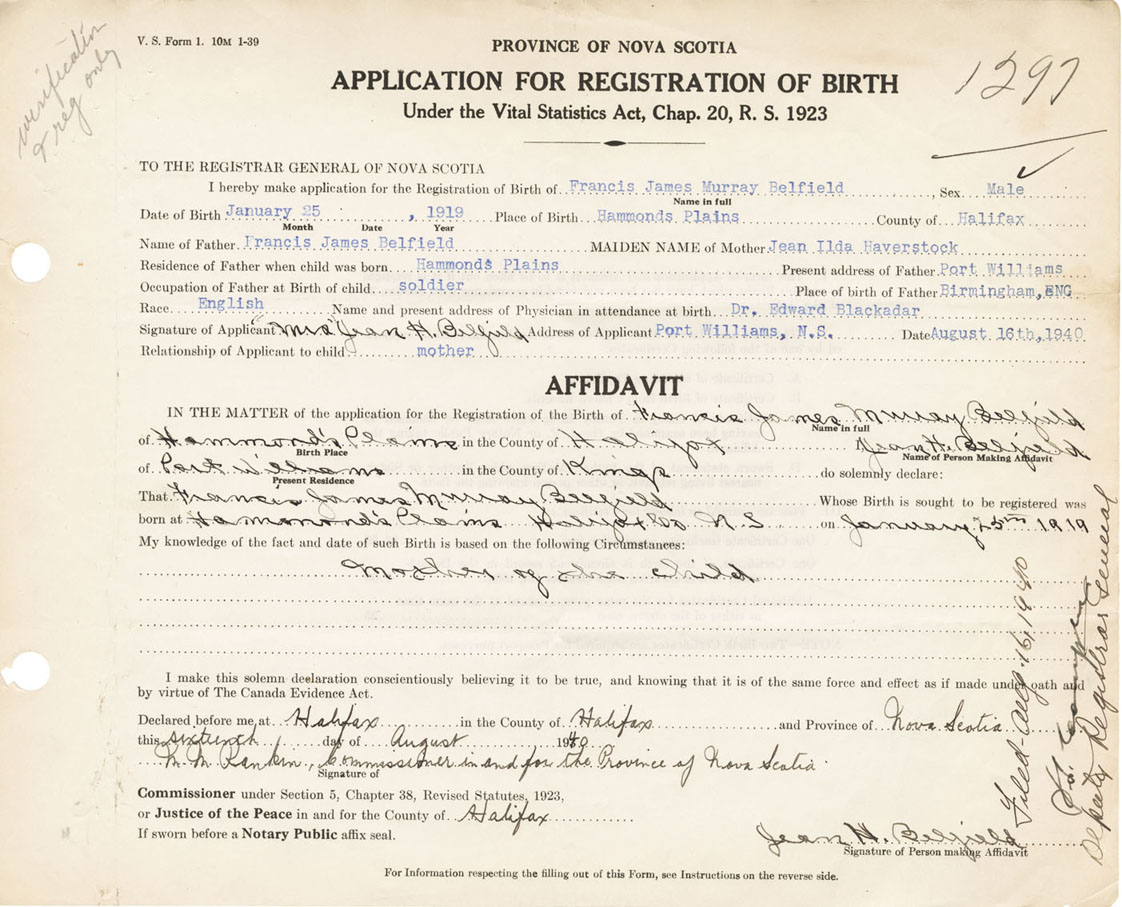 verification
& reg only
V. S. Form 1. 10M 1-39
PROVINCE OF NOVA SCOTIA
1297
APPLICATION FOR REGISTRATION OF BIRTH
Under the Vital Statistics Act, Chap. 20, R. S. 1923
TO THE REGISTRAR GENERAL OF NOVA SCOTIA
I hereby make application for the Registration of Birth of Francis James Murray Belfield, Sex Male
Name in full
Date of Birth January 25, 1919 Place of Birth Hammonds Plains County of Halifax
Month Date Year
Name of Father Francis James Belfield MAIDEN NAME of Mother Jean Ilda Haverstock
Residence of Father when child was born Hammonds Plains Present address of Father Port Williams
Occupation of Father at Birth of child soldier Place of birth of Father Birmingham, ENG
Race English Name and present address of Physician in attendance at birth Dr. Edward Blackadar
Signature of Applicant Mrs Jean H. Belfield Address of Applicant Port Williams, N.S. Date August 16th, 1940
Relationship of Applicant to child mother
AFFIDAVIT
IN THE MATTER of the application for the Registration of the Birth of Francis James Murray Belfield
Name in full
of Hammond's Plains in the County of Halifax Jean H. Belfield
Birth Place Name of Person Making Affidavit
of Port Williams in the County of Kings do solemnly declare:
Present Residence
That Francis James Murray Belfield Whose Birth is sought to be registered was
born at Hamonond's Plains Halifax Co N.S. on January 25th 1919
My knowledge of the fact and date of such Birth is based on the following Circumstances:
Mother of the child
I make this solemn declaration conscientiously believing it to be true, and knowing that it is of the same force and effect as if made under oath and
by virtue of The Canada Evidence Act.
Declared before me at Halifax in the County of Halifax and Province of Nova Scotia.
this sixteenth day of August 1940
M. M. Rankin, Commissioner in and for the Province of Nova Scotia
Signature of
Commissioner under Section 5, Chapter 38, Revised Statutes, 1923,
or Justice of the Peace in and for the County of Halifax
If sworn before a Notary Public affix seal.
Jean H. Belfield
Signature of Person making Affidavit
For Information respecting the filling out of this Form, see Instructions on the reverse side.
Filed - Aug. 16, 1940
Deputy Registrar General